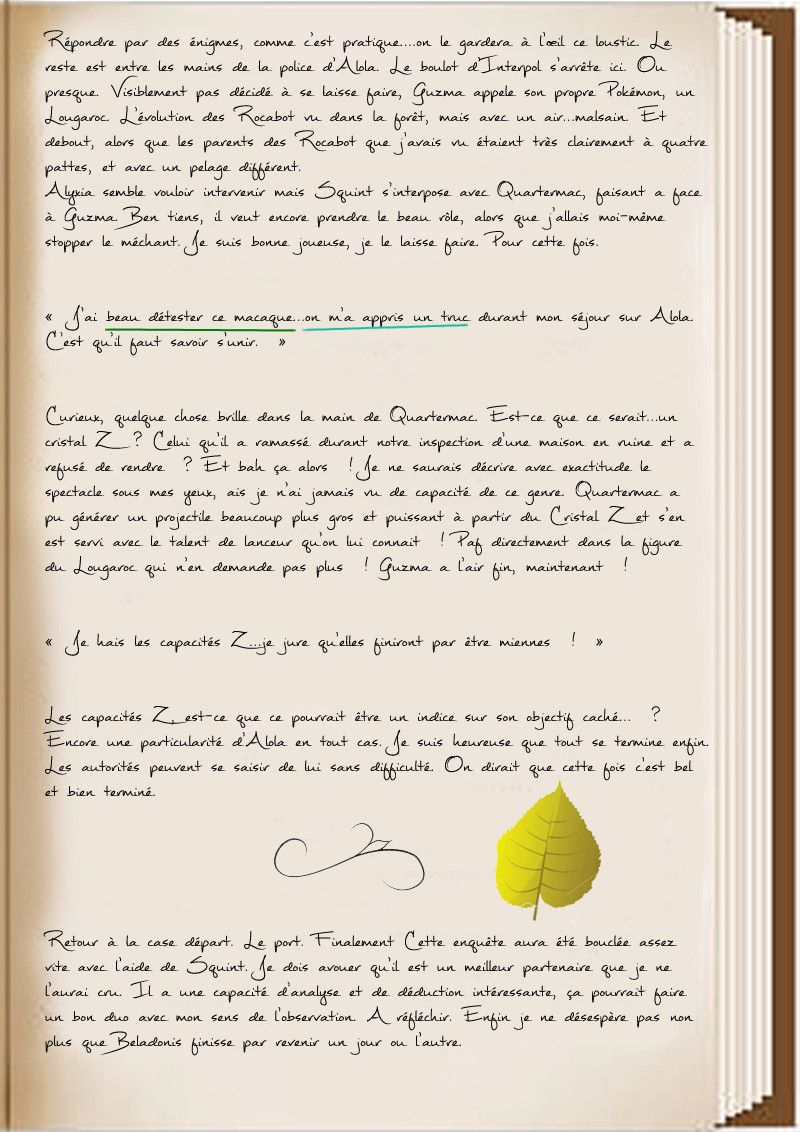 Répondre par des énigmes, comme c'est pratique....on le gardera à l'œil ce loustic. Le
reste est entre les mains de la police d'Alola. Le boulot d'Interpol s'arrête ici. Ou
presque. Visiblement pas décidé à se laisse faire, Guzma appele son propre Pokémon, un
Lougaroc. L'évolution des Rocabot vu dans la forêt, mais avec un air...malsain. Et
debout, alors que les parents des Rocabot que j'avais vu étaient très clairement à quatre
pattes, et avec un pelage différent.
Alyxia semble vouloir intervenir mais Squint s'interpose avec Quartermac, faisant a face
à Guzma. Ben tiens, il veut encore prendre le beau rôle, alors que j'allais moi-même
stopper le méchant. Je suis bonne joueuse, je le laisse faire. Pour cette fois.
« J'ai beau détester ce macaque...on m'a appris un truc durant mon séjour sur Alola.
C'est qu'il faut savoir s'unir. »
Curieux, quelque chose brille dans la main de Quartermac. Est-ce que ce serait...un
cristal Z ? Celui qu'il a ramassé durant notre inspection d'une maison en ruine et a
refusé de rendre ? Et bah ça alors ! Je ne saurais décrire avec exactitude le
spectacle sous mes yeux, ais je n'ai jamais vu de capacité de ce genre. Quartermac a
pu générer un projectile beaucoup plus gros et puissant à partir du Cristal Z et s'en
est servi avec le talent de lanceur qu'on lui connait ! Paf directement dans la figure
du Lougaroc qui n'en demande pas plus ! Guzma a l'air fin, maintenant !
« Je hais les capacités Z...je jure qu'elles finiront par être miennes ! »
Les capacités Z, est-ce que ce pourrait être un indice sur son objectif caché... ?
Encore une particularité d'Alola en tout cas. Je suis heureuse que tout se termine enfin.
Les autorités peuvent se saisir de lui sans difficulté. On dirait que cette fois c'est bel
et bien terminé.
Retour à la case départ. Le port. Finalement Cette enquête aura été bouclée assez
vite avec l'aide de Squint. Je dois avouer qu'il est un meilleur partenaire que je ne
l'aurai cru. Il a une capacité d'analyse et de déduction intéressante, ça pourrait faire
un bon duo avec mon sens de l'observation. A réfléchir. Enfin je ne désespère pas non
plus que Beladonis finisse par revenir un jour ou l'autre.